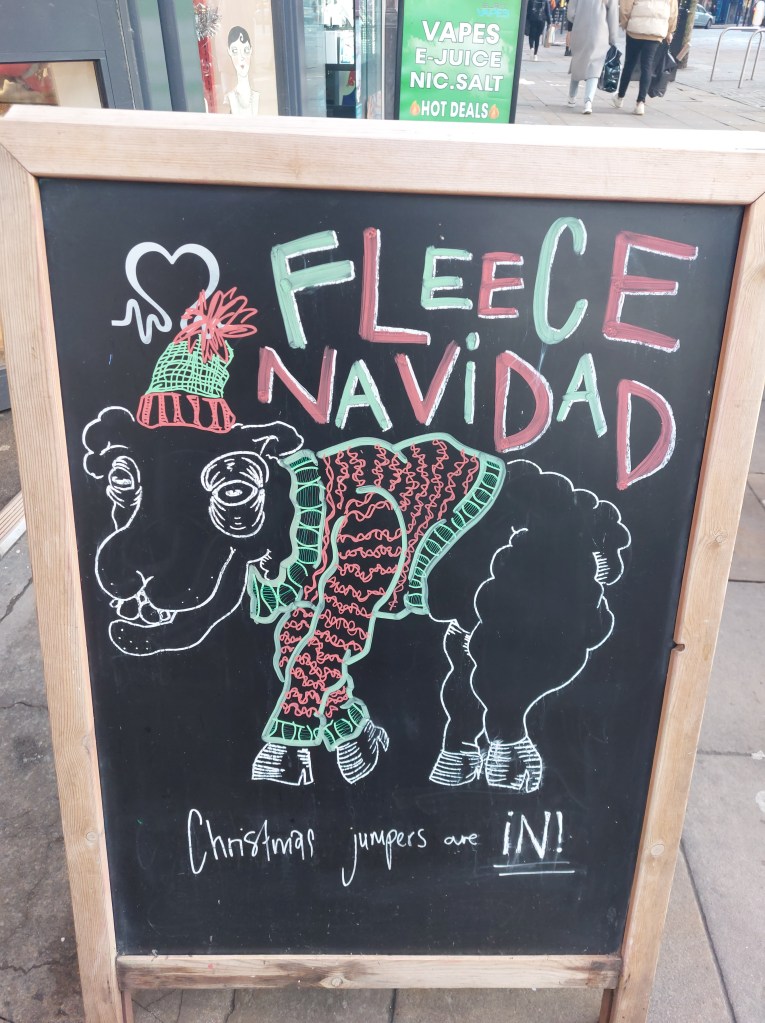 VAPES
E-JUICE
NIC.SALT
HOT DEALS
FLEECE
NAViDAD
Christmas jumpers are iN!